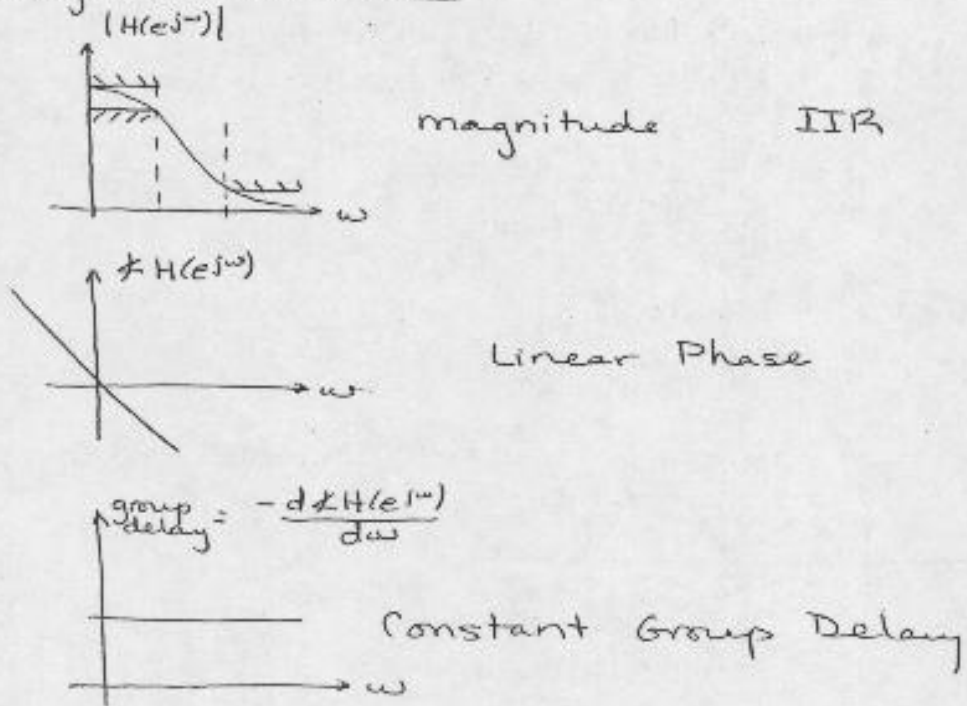 |H(e^jω)|
magnitude IIR
ω
∡ H(e^jω)
Linear Phase
ω
group delay = - d∡H(e^jω) / dω
Constant Group Delay
ω